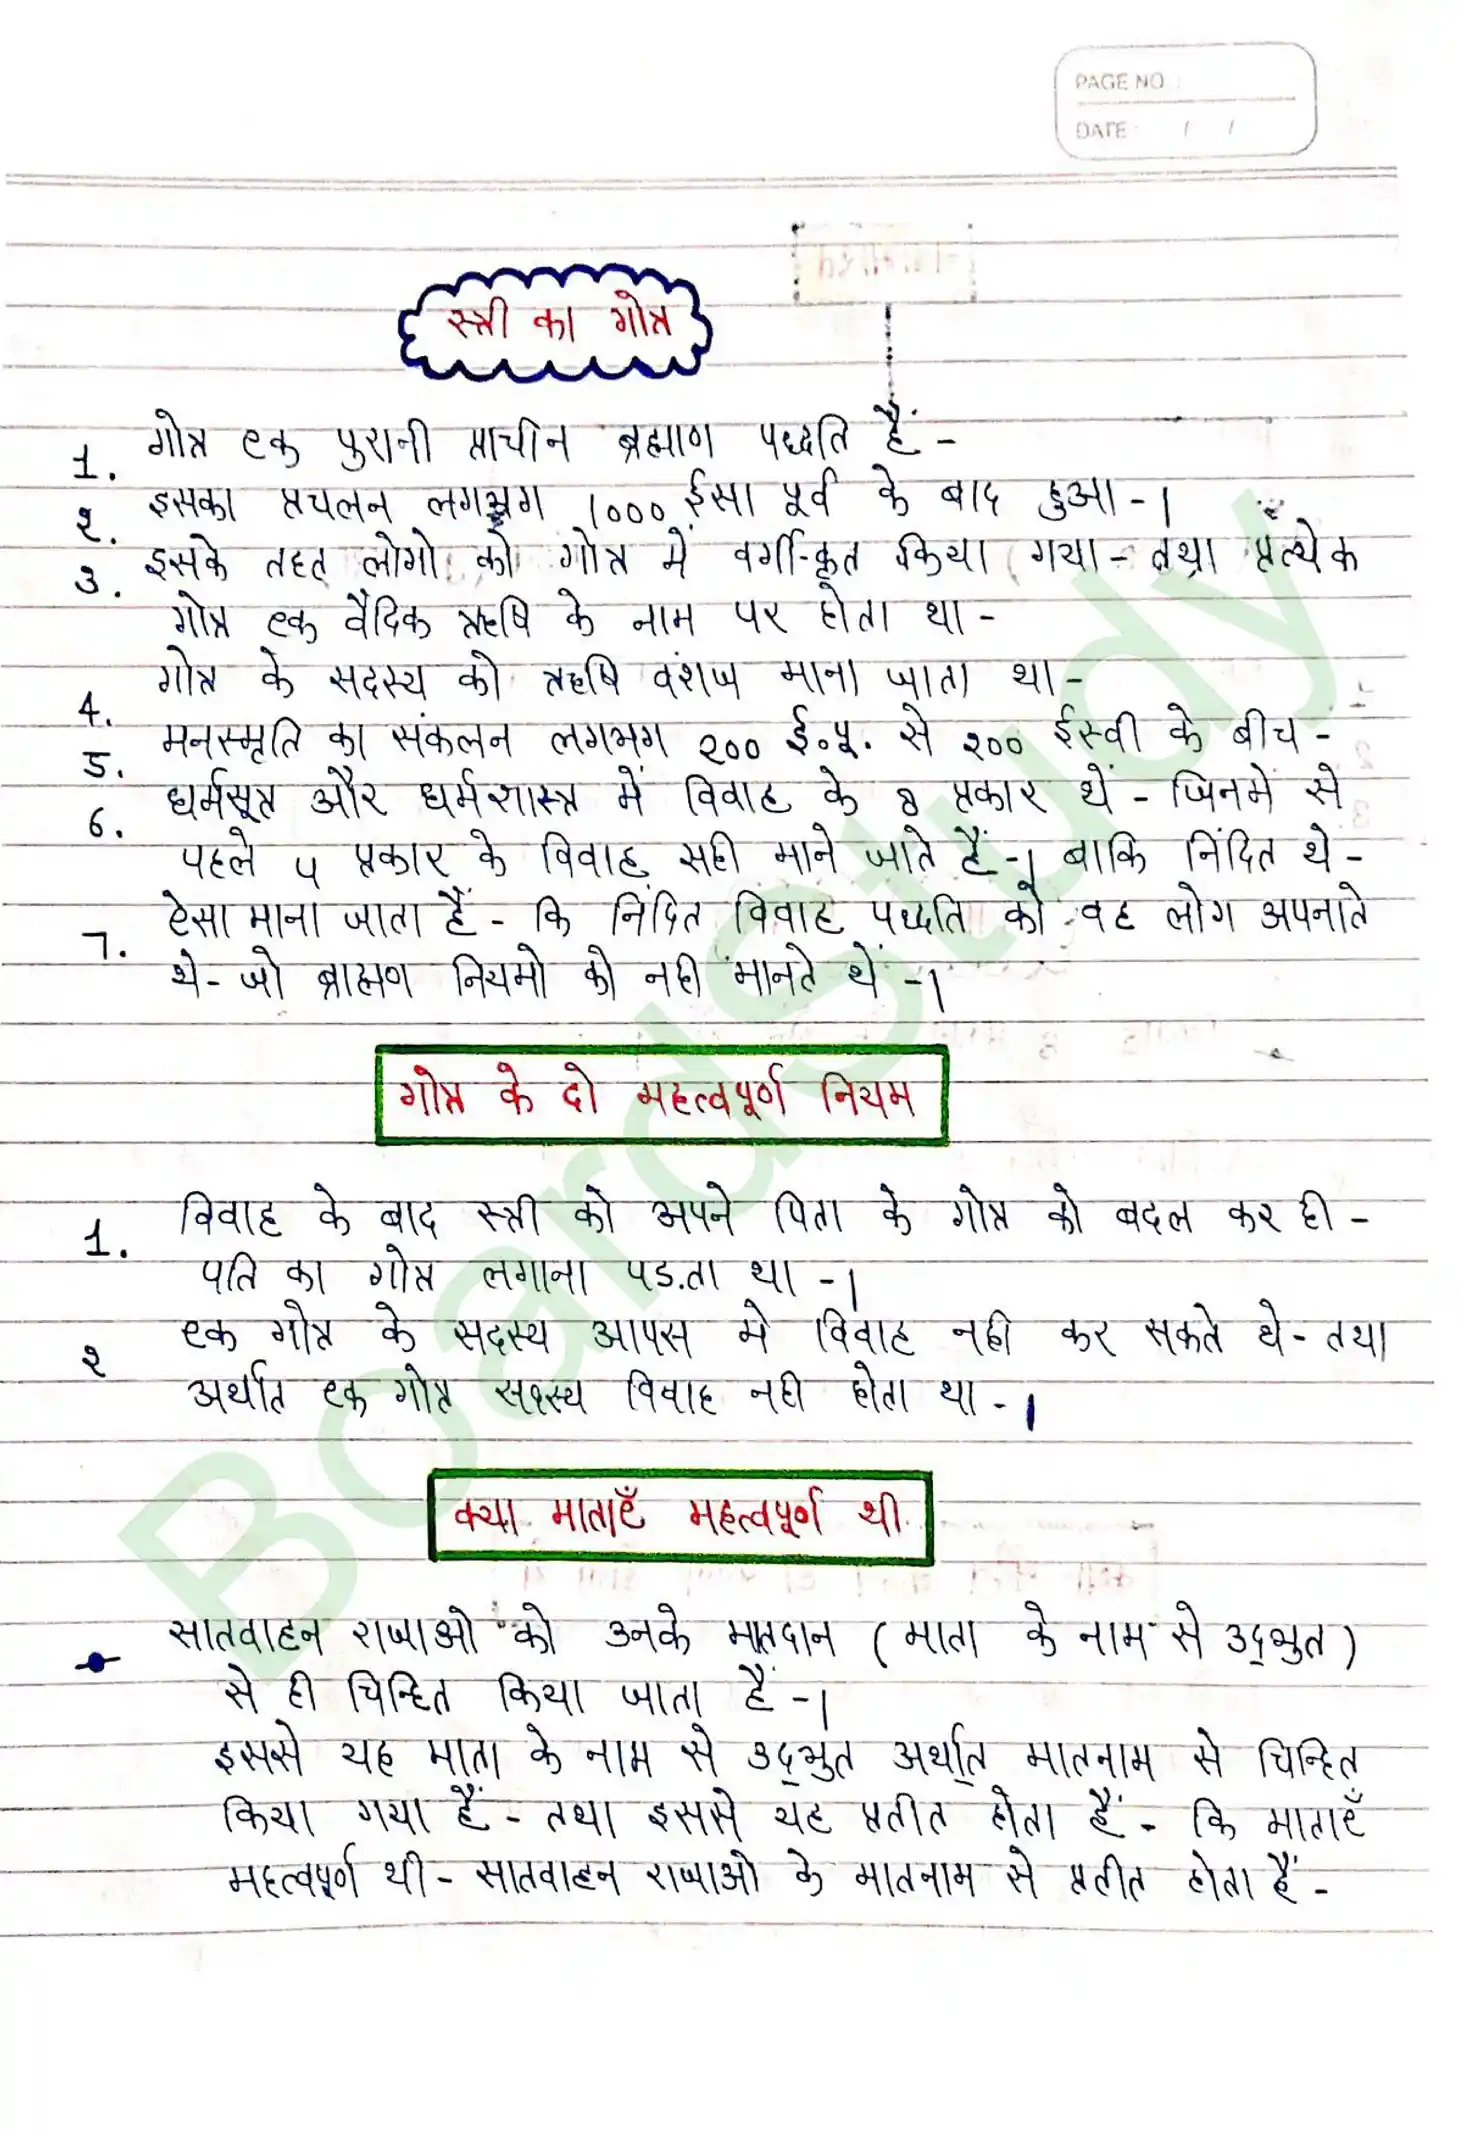 PAGE NO :
DATE : / /
स्त्री का गोत्र
1. गोत्र एक पुरानी प्राचीन ब्रह्माण पध्दति हैं -
२. इसका प्रचलन लगभग 1000 ईसा पूर्व के बाद हुआ - ।
3. इसके तहत लोगो को गोत्र में वर्गीकृत किया गया - तथा प्रत्येक
गोत्र एक वैदिक ऋषि के नाम पर होता था -
4. गोत्र के सदस्य को ऋषि वंशज माना जाता था -
5. मनस्मृति का संकलन लगभग २०० ई.पू. से २०० ईस्वी के बीच -
6. धर्मसूत्र और धर्मशास्त्र में विवाह के 8 प्रकार थें - जिनमें से
पहले 4 प्रकार के विवाह सही माने जाते हैं - । बाकि निंदित थे -
7. ऐसा माना जाता हैं - कि निंदित विवाह पध्दति को वह लोग अपनाते
थे - जो ब्राह्मण नियमो को नही मानते थें - ।
गोत्र के दो महत्वपूर्ण नियम
1. विवाह के बाद स्त्री को अपने पिता के गोत्र को बदल कर ही -
पति का गोत्र लगाना पड.ता था - ।
२ एक गोत्र के सदस्य आपस मे विवाह नही कर सकते थे - तथा
अर्थात एक गोत्र सदस्य विवाह नही होता था - ।
क्या माताएँ महत्वपूर्ण थी
सातवाहन राजाओ को उनके मातदान ( माता के नाम से उद्भुत )
से ही चिन्हित किया जाता हैं - ।
इससे यह माता के नाम से उद्भुत अर्थात् मातनाम से चिन्हित
किया गया हैं - तथा इससे यह प्रतीत होता हैं - कि माताएँ
महत्वपूर्ण थी - सातवाहन राजाओ के मातनाम से प्रतीत होता हैं -
BoardStudy